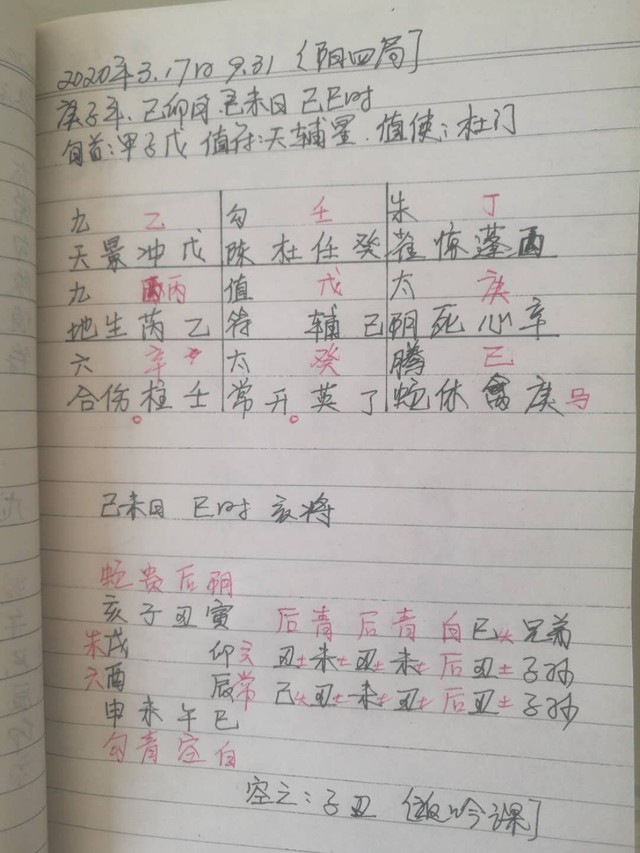 2020年3.17日 9.31 [阳四局]
庚子年、己卯月己未日己巳时
旬首:甲子戊 值符:天辅星.值使:杜门
九 乙 勾 壬 朱 丁
天景冲戊 陈杜任癸 雀惊蓬
九 丙 值 戊 太 庚
地生芮乙 符 辅己 阴死心辛
六 辛 太 癸 腾 己
合伤柱壬 常开英丁 蛇休禽庚马
己未日 巳时 亥将
蛇贵后阴
亥子丑寅 后青后青 白巳火兄弟
朱戌 卯玄 丑土未土丑土未土 后丑土子孙
六酉 辰常 己火丑土未土丑土 后丑土子孙
申未午巳
勾青空白
空亡:子丑 [返吟课]